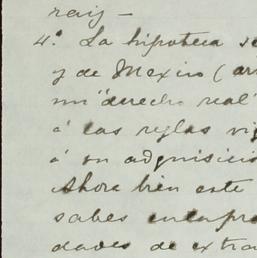 raiz —
4.ª La hipoteca se
y de Mexico (ar
un "derecho real"
á las reglas vi
á su adquisició
Ahora bien este
sabes
dades de extra